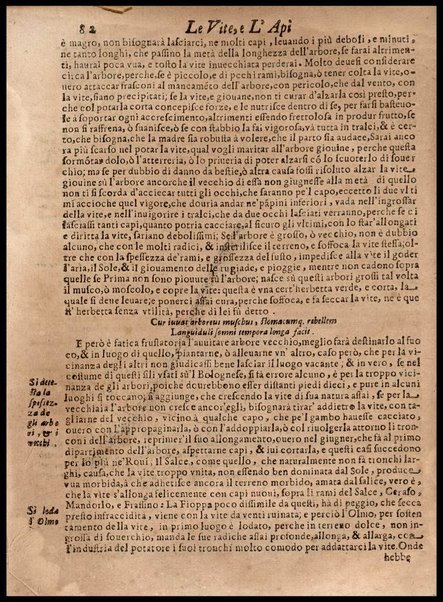 82 Le Vite, e L'Api
è magro, non bisognarà lasciarci, ne molti capi, leuando i più deboli, e minuti,
ne tanto longhi, che passino la metà della longhezza dell'arbore, se farai altrimen-
ti, haurai poca vua, e tosto la vite inuecchiata perderai. Molto deuesi considerare
circa l'arbore, perche, se è piccolo, e di pochi rami, bisogna, ò tener colta la vite, o-
uero attaccar frasconi al mancamēto dell'arbore, con pericolo, che dal vento, con
la vite, siano precipitati; se la vite, e giouane, non ti curar d'alzarla così presto, per-
che col potarla corta concepisce forze, e le nutrisce dentro di se, per farsi basteuo-
le à soportar ogni accrescimento, altrimenti essendo frettolosa in produr frutto, se
non si raffrena, ò suanisce, ò se con stabbio la fai vigorosa, và tutta in tralci, & è cer-
to, che bisogna, che la madre sia robusta à volere, che il parto sia audace, Sarai anco-
ra più scarso nel cargar la vite, qual vogli maritar all'arbore giouine, perche questa
dolo, ò l'atterreria, ò lo priueria di poter alzarsi cō lo scuoterlo di souer
chio; ma se per dubbio di danno da bestie, ò altra causa fossi risoluto alzar la vite
giouine sù l'arbore ancorche il vecchio di essa non giugnesse alla metà di quello
non ti si scorda d'acciecar tutti gli occhi, che saranno pe'l capo, eccetto li due vlti
mi acciochе quel vigore, che douria andar ne' pàpini inferiori, vada nell'ingrossar
della vite, e nell'inuigorire i tralci, che da duoi occhi lasciati verranno, perche se ci
lasciassi tanti capi, quanto potria cacciare, al sicuro gli vltimi, con lo star'allongati
e diritta la vite, sariano debolissimi; Se l'arbore è grosso, ò vecchio, non è dubbio
alcuno, che con le molti radici, & insterilisce il terreno, e soffoca la vite stessa, ol-
tre che con la spessezza de'rami, e grossezza del fusto, impedisce alla vite il goder
l'aria, il Sole, & il giouamento delle rugiade, e pioggie, mentre non cadono sopra
quelle se Prima non sono piouute sù l'arbore; nasce in questi arbori grossi tal volta
il musco, ò moscolo, e copre la vite questa è vna cert'herbetta verde, e corta, la
quale si deue leuare; e ponerci assai cura, perche soffoca, e fa seccar la vite, ne è que
st'herbetta senza vtilità, perche di lei fù detto.
Cur iuuat arboreus muschus, stomacumq. rebellem
Languiduli somni tempora longa facit.
E però è fatica frustatoria l'auuitare arbore vecchio, meglio sarà destinarlo al fuo
co, & in luogo di quello, piantarne, ò alleuarne vn' altro, caso però, che per la vi-
cinanza degli altri non giudicassi bene lasciar il luogo vacante, & in vero, se nel
costume di questi filli vsati sù'l Bodognese, si fà errore alcuno, è per la troppo vici-
nanza de gli arbori, poiche douerebbono esser distanti piedi dieci, e pure in alcuni
luoghi si toccano; s'aggiunge, che crescendo la vite di sua natura assai, se per la
vecchiaia l'arbore non cresce ancor'egli, bisognarà tirar' addietro la vite, con ta-
gliarne del vecchio, vicino à qualche capo, che pe'l gambo hauesse cacciato,
ouero con l'appropaginarla, ò con l'addoppiarla, ò col riuolgerla attorno li tron-
coni dell'arbore, reprimer'il suo allongamento, ouero nel giugner, che fà al primo
dipartimento dell'arbore, aspettarne capi, & iui cortarla, e questi casi succedono
per lo più ne'Roui, il Salce, come quello, che naturalmente non fà tronchi lar-
ghi, causa, che la vite troppo vnita, non essendo ben dominata dal Sole, produce
vua morbida, à che adherisce ancora il terreno morbido, amata dal salice, vero è,
che la vite s'allonga felicemente con capi nuoui, sopra li rami del Salce, Ceraso,
Mandorlo, e Frassino: La Fioppa poco dissimile da questi, hà di peggio, che secca
presto infraccidita, viene con la vite da venti ruinata; e perciò l'Olmo, per sosten
tamento della vite, in primo luogo è lodato, perche in terreno dolce, non in-
grossa di souerchio, manda le sue radice assai profonde, allonga, & allarga, con
l'industria del potatore i suoi tronchi molto comodo per addattarci la vite. Onde
hebbe
Si dete-
sta la
spessez-
za de
gli arbo
ri, e i
vecchi.
Si loda
l'Olmo